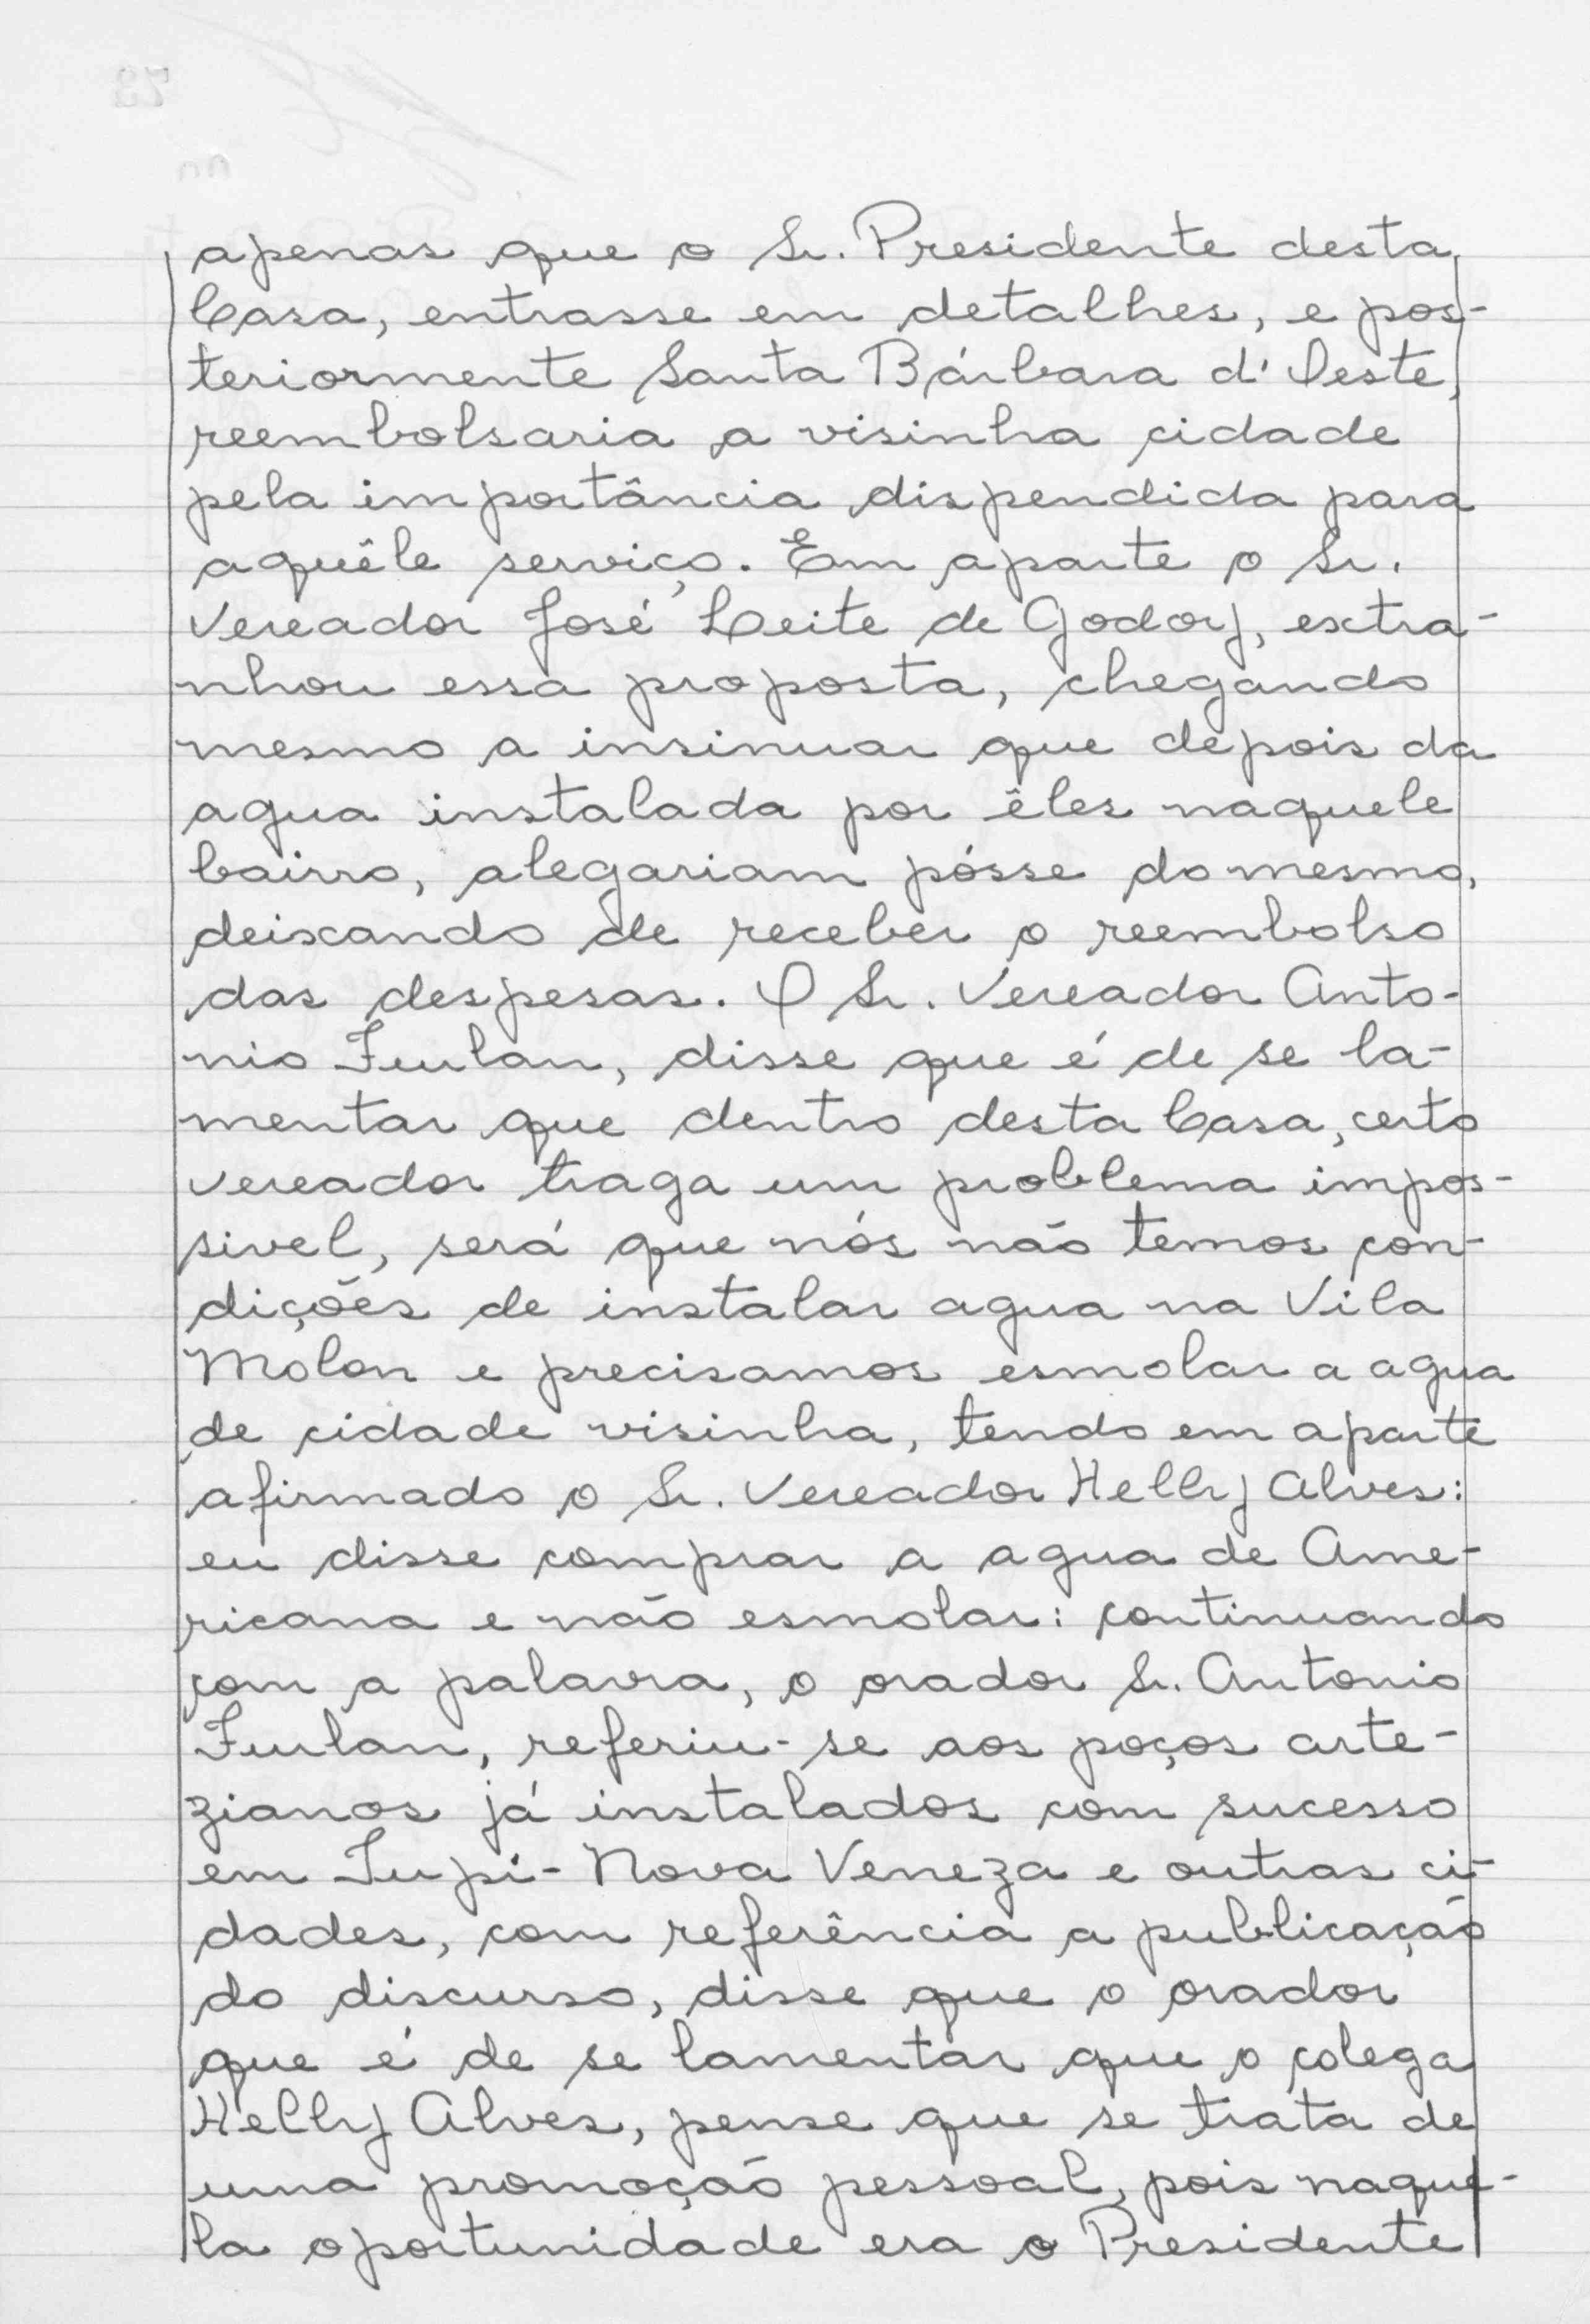 apenas que o Sr. Presidente desta
Casa, entrasse em detalhes, e pos-
teriormente Santa Bárbara d'Oeste,
reembolsaria a visinha cidade
pela importância dispendida para
aquêle serviço. Em aparte o Sr.
Vereador José Leite de Godoy, extra-
nhou essa proposta, chegando
mesmo a insinuar que depois da
agua instalada por êles naquele
bairro, alegariam pósse do mesmo,
deixando de receber o reembolso
das despesas. O Sr. Vereador Anto-
nio Furlan, disse que é de se la-
mentar que dentro desta Casa, certo
vereador traga um problema impos-
sivel, será que nós não temos con-
dições de instalar agua na Vila
Molon e precisamos esmolar a agua
de cidade visinha, tendo em aparte
afirmado o Sr. Vereador Helly Alves:
eu disse comprar a agua de Ame-
ricana e não esmolar: continuando
com a palavra, o orador Sr. Antonio
Furlan, referiu-se aos poços arte-
zianos já instalados com sucesso
em Tupi- Nova Veneza e outras ci-
dades, com referência a publicação
do discurso, disse que o orador
que é de se lamentar que o colega
Helly Alves, pense que se trata de
uma promoção pessoal, pois naque-
la oportunidade era o Presidente